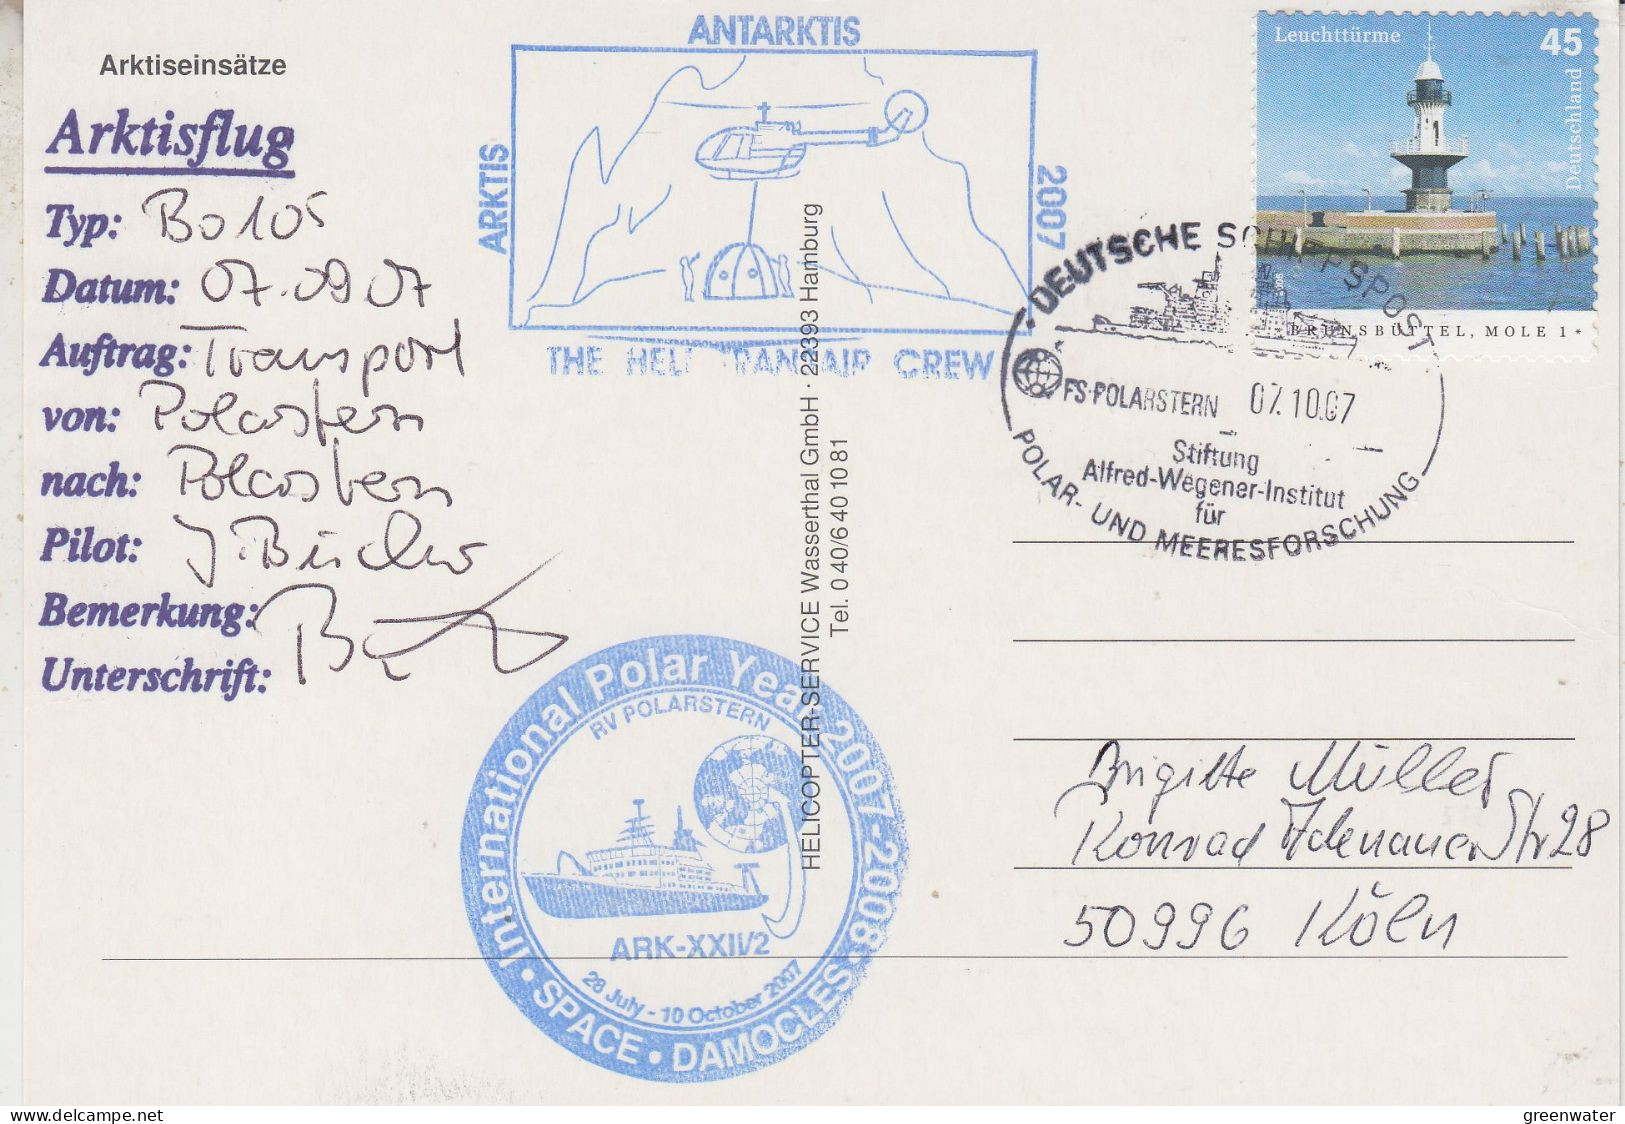 Arktiseinsätze
Arktisflug
Typ: Bo 105
Datum: 07.09 07
Auftrag: Transport
von: Polarstern
nach: Polarstern
Pilot: J. Büchner
Bemerkung:
Unterschrift:
ANTARKTIS
ARKTIS
2007
THE HELI TRANSAIR CREW
HELICOPTER-SERVICE Wasserthal GmbH · 22393 Hamburg
Tel. 0 40/6 40 10 81
Leuchttürme 45
Deutschland
BRUNSBÜTTEL, MOLE 1
DEUTSCHE SCHIFFSPOST
FS·POLARSTERN 07.10.07
Stiftung
Alfred-Wegener-Institut
für
POLAR- UND MEERESFORSCHUNG
International Polar Year 2007-2008
RV POLARSTERN
ARK-XXII/2
28 July - 10 October 2007
• SPACE • DAMOCLES
Brigitte Müller
Konrad Adenauer Str 28
50996 Köln
greenwater
delcampe.net